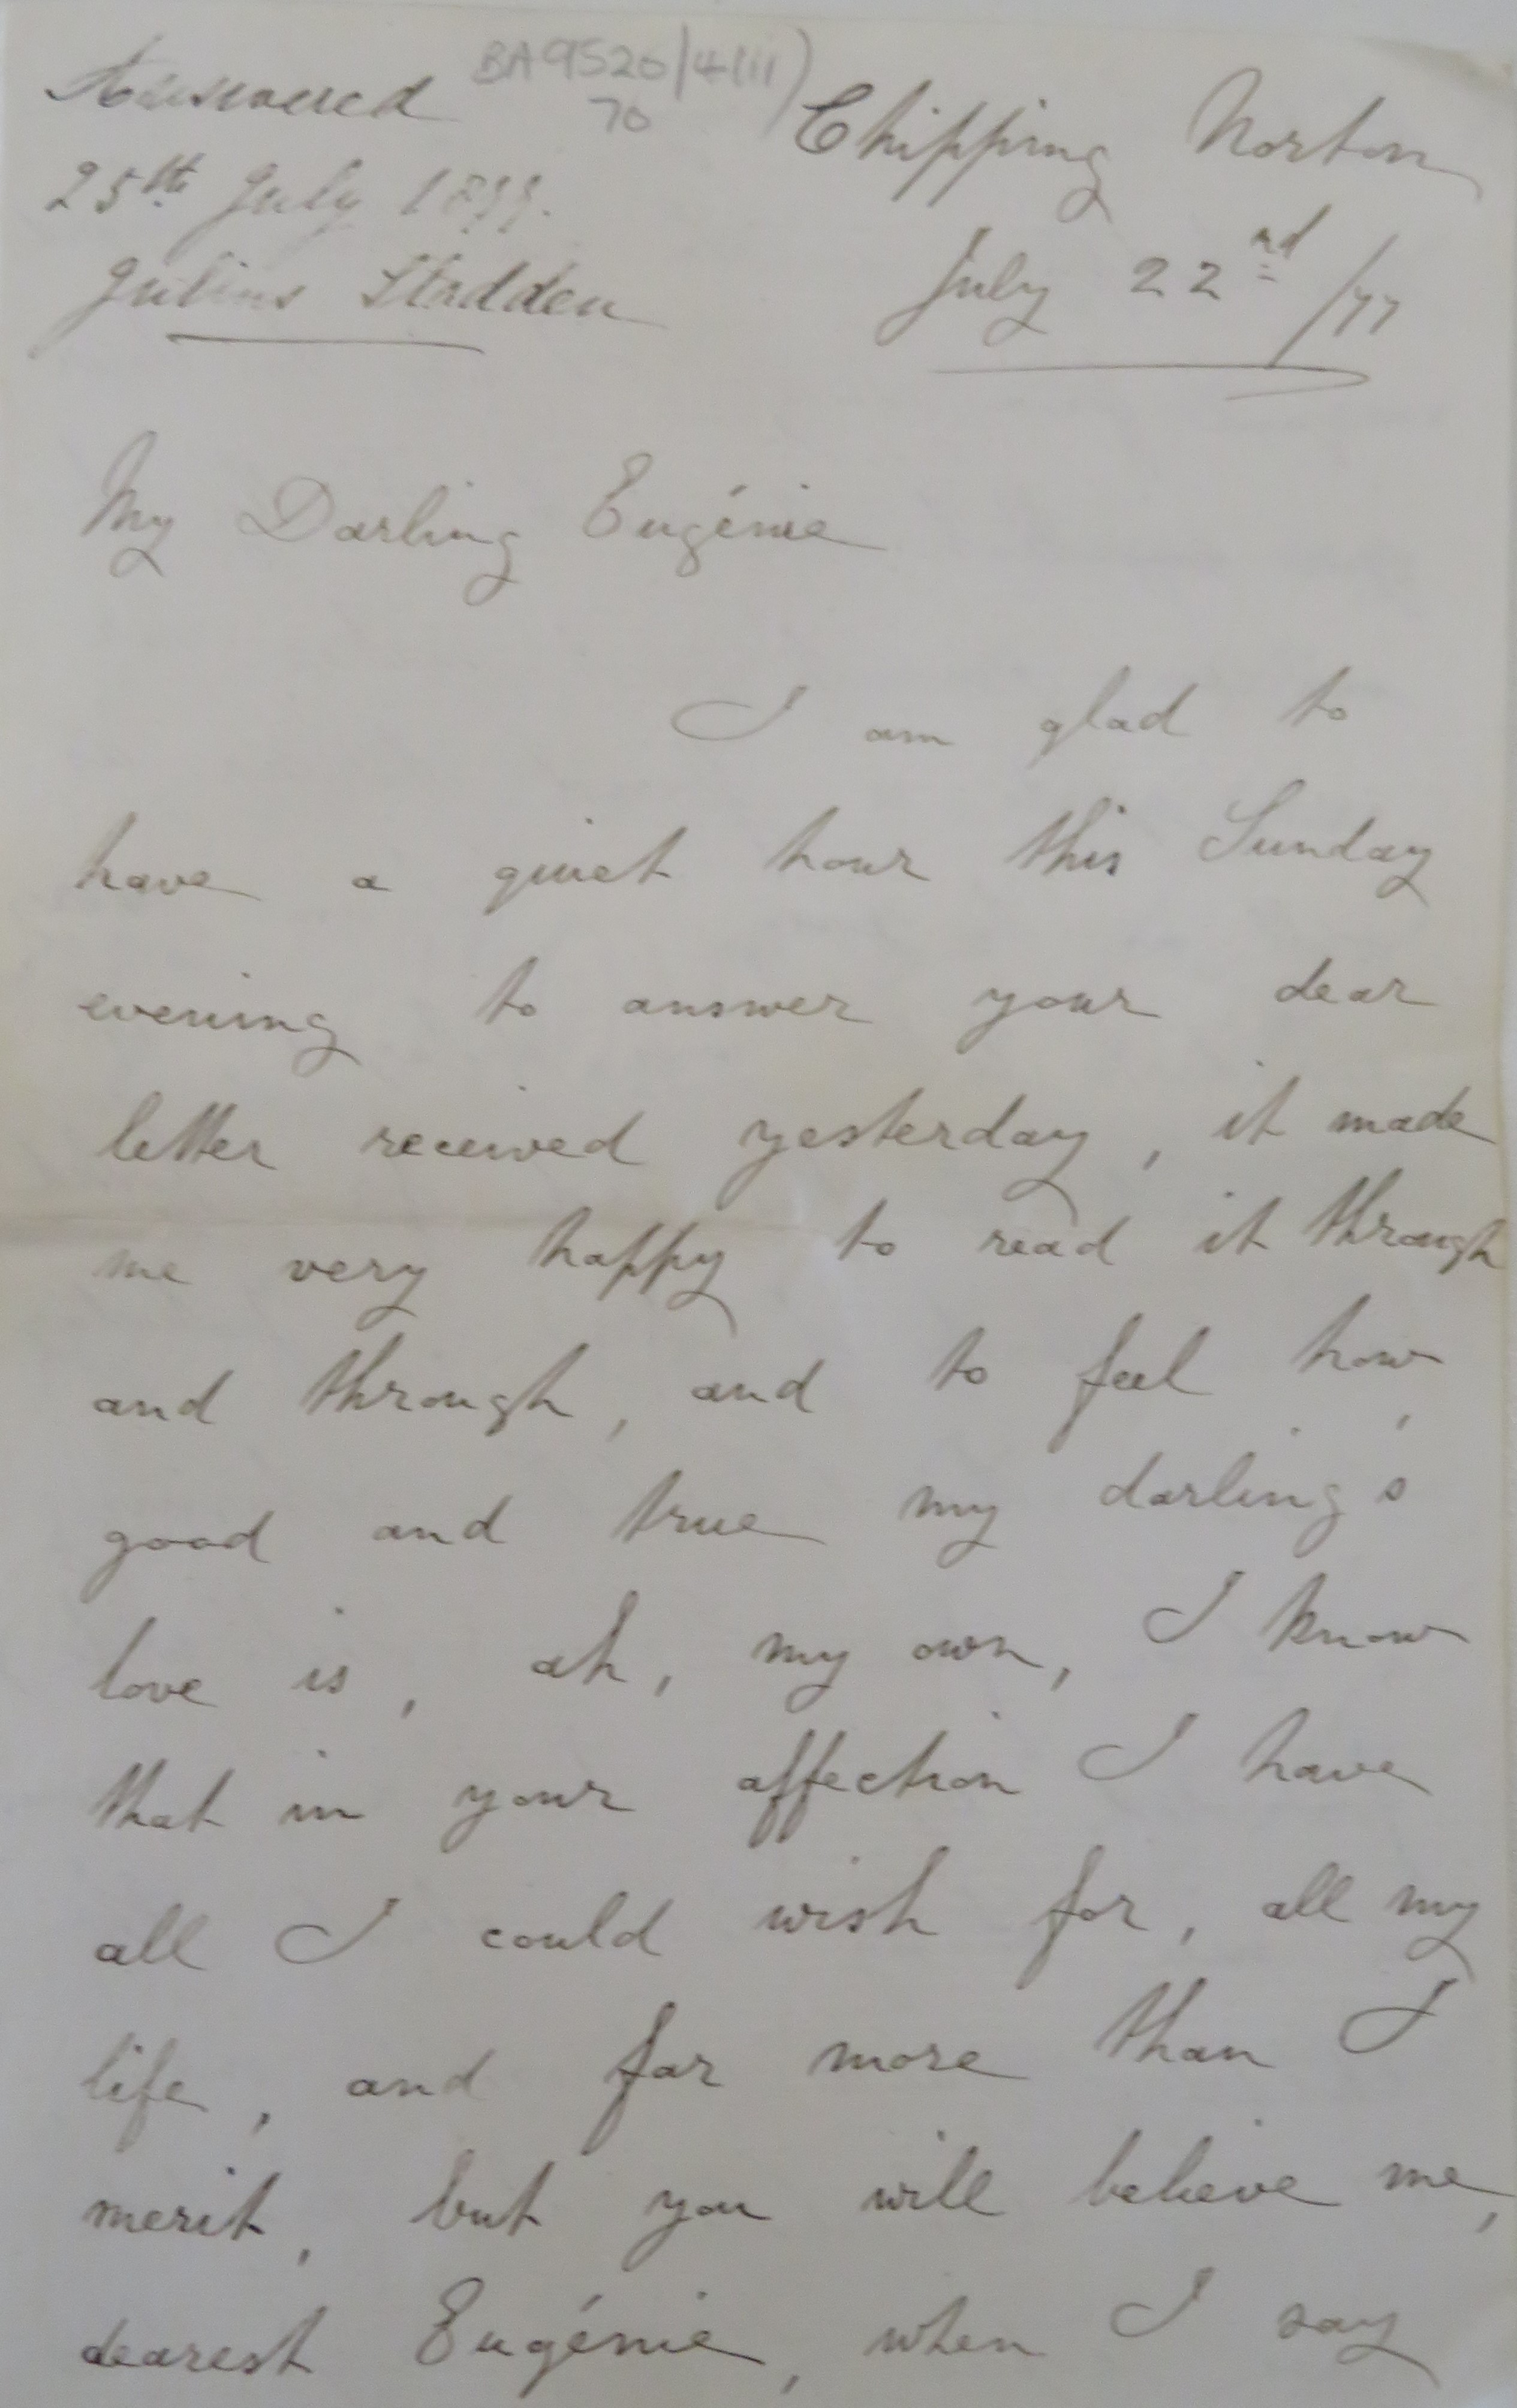 BA9520/4(ii)
70
Answered
25th July 1877.
Julius Sladden
Chipping Norton
July 22nd /77
My Darling Eugénie
I am glad to
have a quiet hour this Sunday
evening to answer your dear
letter received yesterday, it made
me very happy to read it through
and through, and to feel how,
good and true my darling's
love is, ah, my own, I know
that in your affection I have
all I could wish for, all my
life, and far more than I
merit, but you will believe me,
dearest Eugénie, when I say